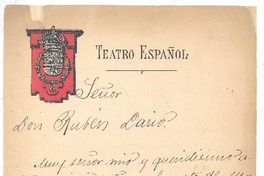 TEATRO ESPAÑOL
Señor
Don Rubén Dario.
Muy señor mio y queridísimo a-